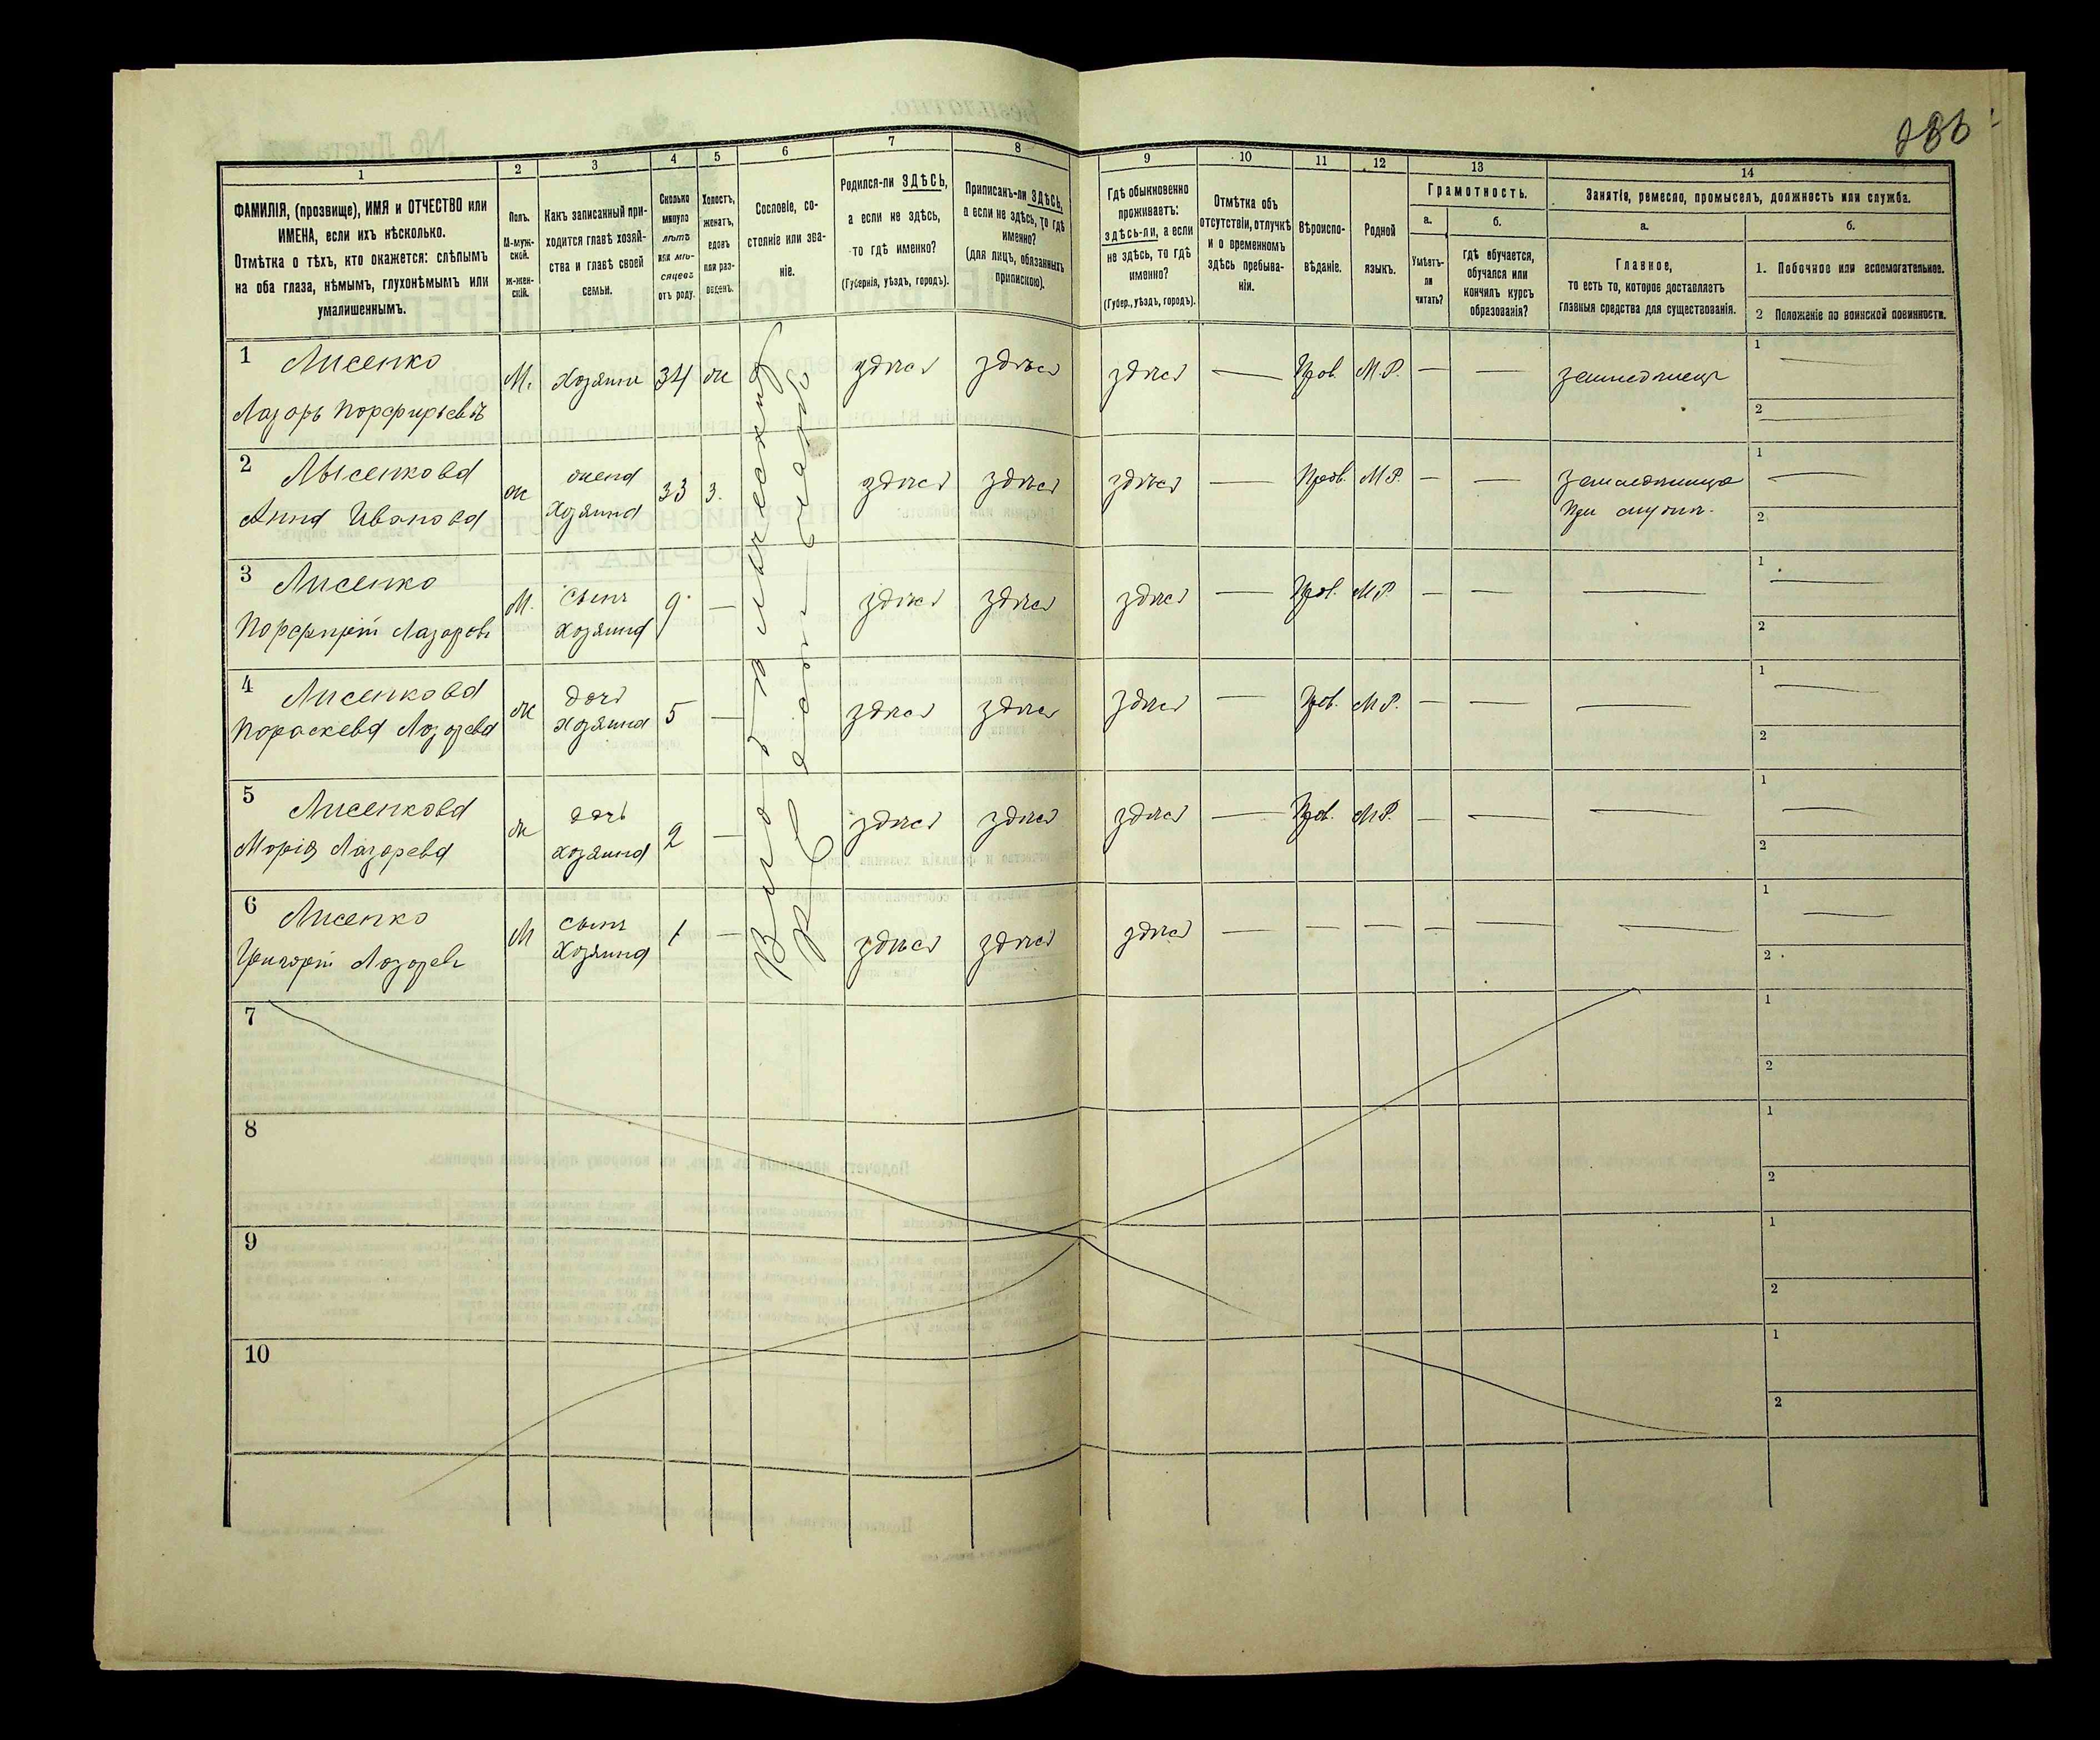 286
1 2 3 4 5 6 7 8 9 10 11 12 13 14
ФАМИЛІЯ, (прозвище), ИМЯ и ОТЧЕСТВО или
ИМЕНА, если ихъ нѣсколько.
Отмѣтка о тѣхъ, кто окажется: слѣпымъ
на оба глаза, нѣмымъ, глухонѣмымъ или
умалишеннымъ.
Полъ.
М-муж-
ской.
ж-жен-
скій.
Какъ записанный при-
ходится главѣ хозяй-
ства и главѣ своей
семьи.
Сколько
минуло
лѣтъ
или мѣ-
сяцевъ
отъ роду.
Холостъ,
женатъ,
вдовъ
или раз-
веденъ.
Сословіе, со-
стояніе или зва-
ніе.
Родился-ли ЗДѢСЬ,
а если не здѣсь,
то гдѣ именно?
(Губернія, уѣздъ, городъ).
Приписанъ-ли ЗДѢСЬ,
а если не здѣсь, то гдѣ
именно?
(для лицъ, обязанныхъ
припискою).
Гдѣ обыкновенно
проживаетъ:
здѣсь-ли, а если
не здѣсь, то гдѣ
именно?
(Губер., уѣздъ, городъ).
Отмѣтка объ
отсутствіи, отлучкѣ
и о временномъ
здѣсь пребыва-
ніи.
Вѣроиспо-
вѣданіе.
Родной
языкъ.
Грамотность.
а.
Умѣетъ-
ли
читать?
б.
Гдѣ обучается,
обучался или
кончилъ курсъ
образованія?
Занятіе, ремесло, промыселъ, должность или служба.
а.
Главное,
то есть то, которое доставляетъ
главныя средства для существованія.
б.
1. Побочное или вспомогательное.
2 Положеніе по воинской повинности.
1 Лисенко
Лазорь Порфирьевъ
М. Хозяин 34 ж здѣсь здѣсь здѣсь — Прав. М.Р. — — земледѣлецъ 1 — 2 —
2 Лысенкова
Анна Иванова
ж жена
Хозяина
33 з. здѣсь здѣсь здѣсь — Прав. М.Р. — — земледѣлица
При
1 — 2
3 Лисенко
Порфирій Лазоровъ
М. сынъ
Хозяина
9 — здѣсь здѣсь здѣсь — Прав. М.Р. — — — 1 — 2
4 Лисенкова
Пораскева Лозорева
ж дочь
Хозяина
5 — здѣсь здѣсь здѣсь — Прав. М.Р. — — — 1 — 2
5 Лисенкова
Марія Лазорева
ж дочь
хозяина
2 — здѣсь здѣсь здѣсь — Прав. М.Р. — — — 1 — 2
6 Лисенко
Григорій Лозоревъ
М сынъ
Хозяина
1 — здѣсь здѣсь здѣсь — — — — — — 1 — 2
7 1 2
8 1 2
9 1 2
10 1 2